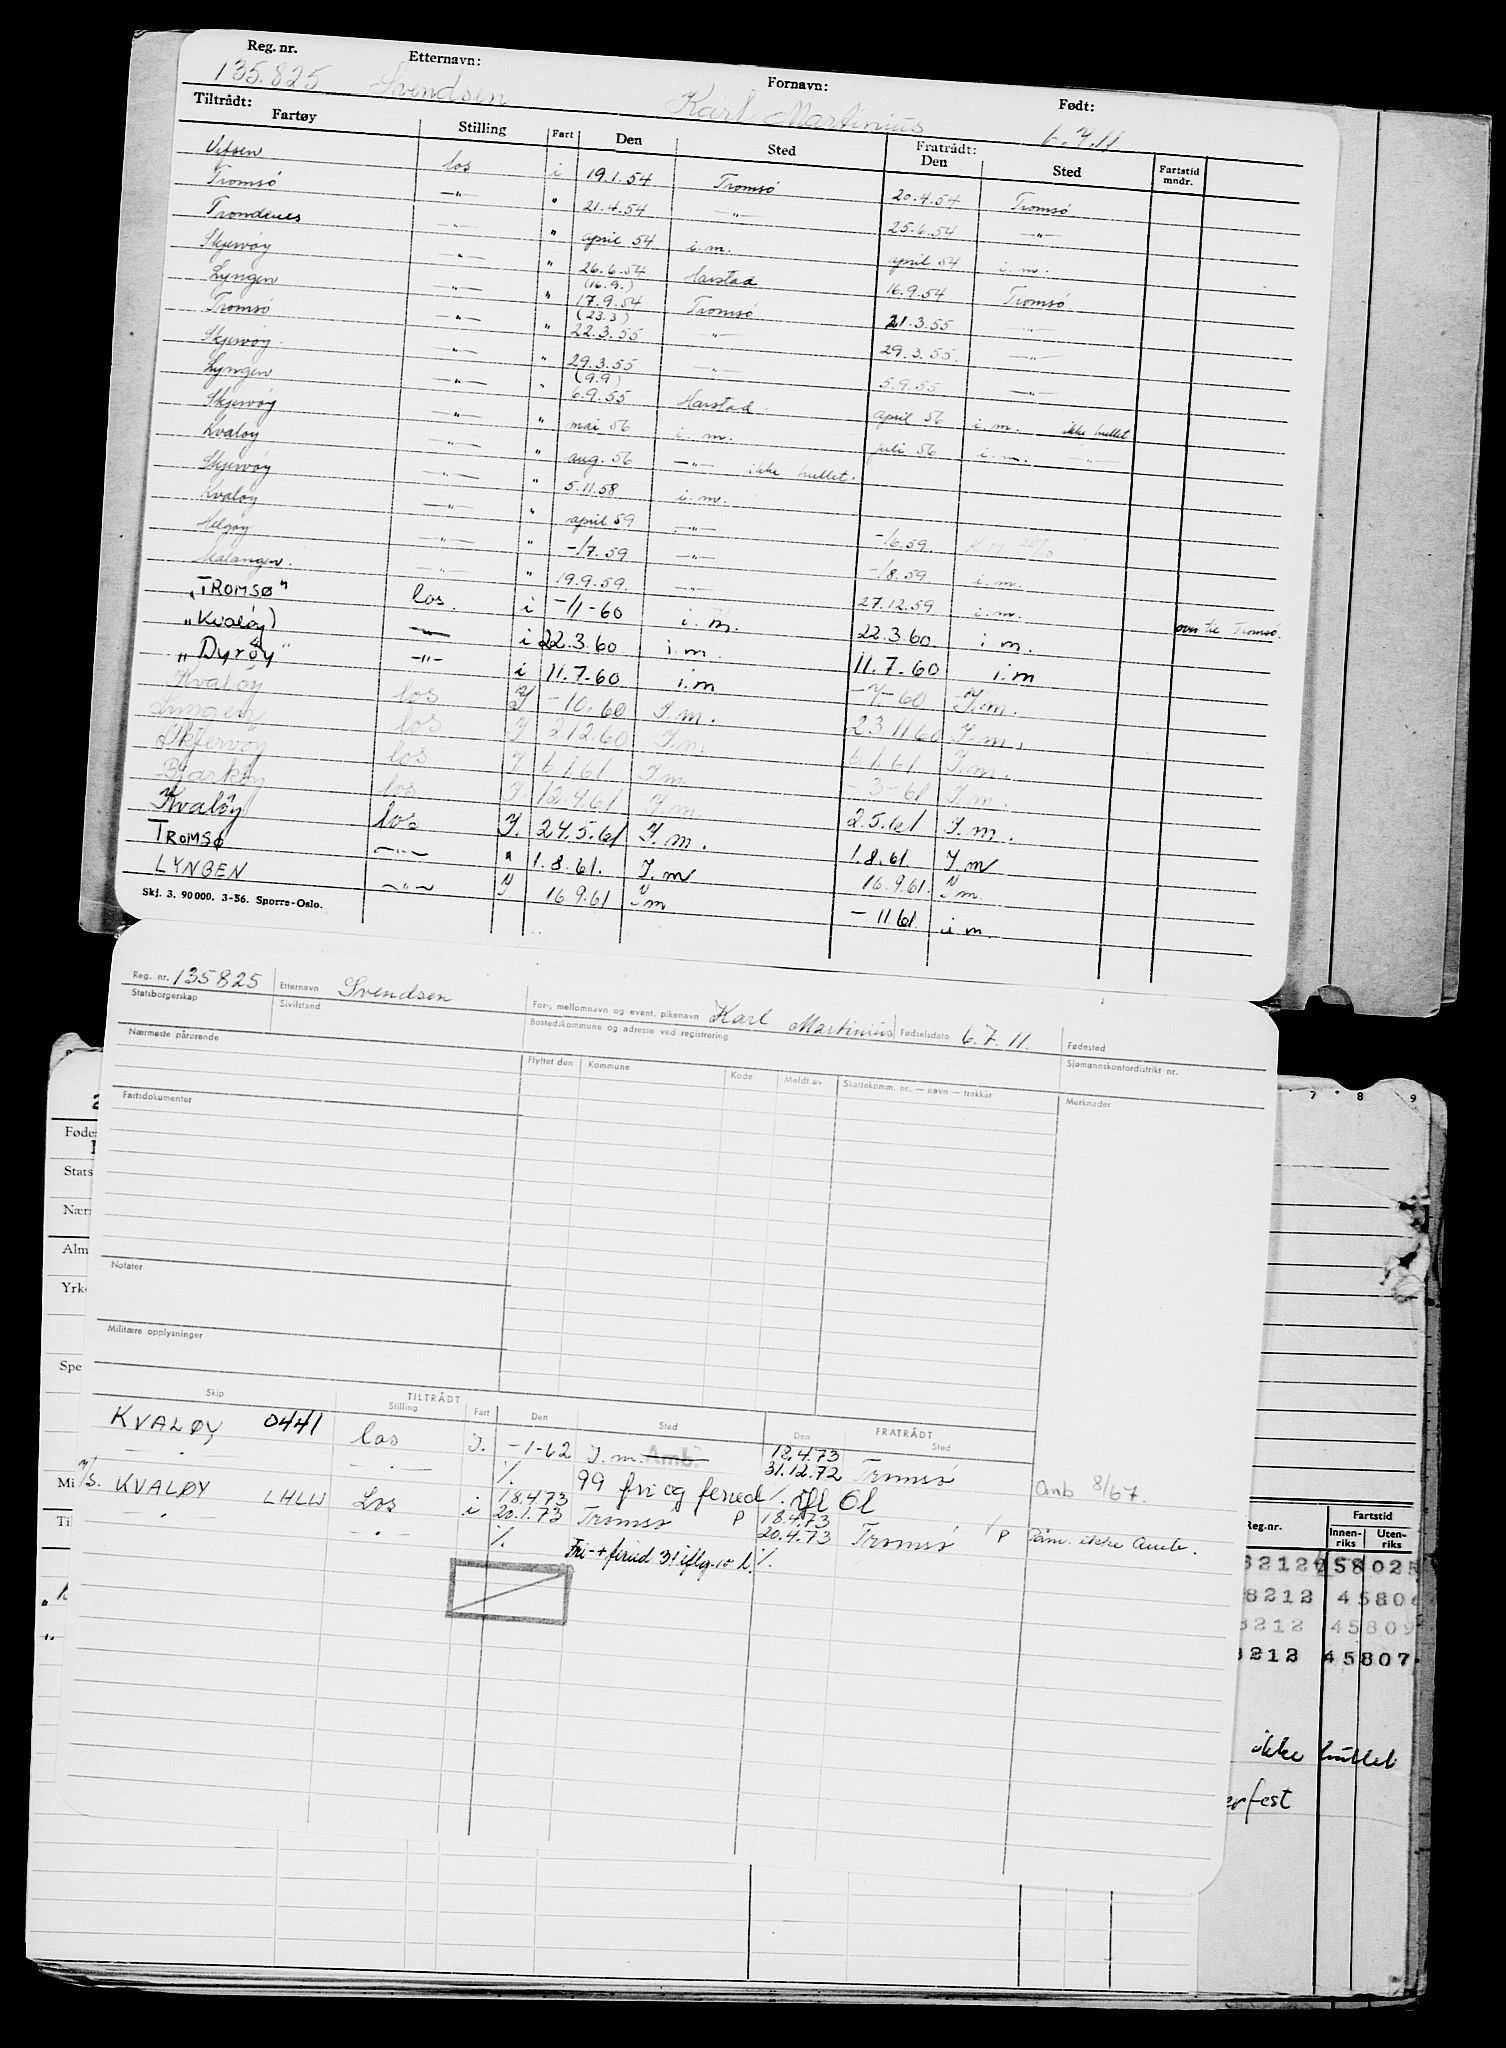 Reg. nr. Etternavn: Fornavn: Født:
135.825 Svendsen Karl Martinius 6.7.11
Tiltrådt: Fratrådt:
Fartøy Stilling Fart Den Sted Den Sted Fartstid mndr.
Vefsen los i 19.1.54 Tromsø 20.4.54 Tromsø
Tromsö —"— " 21.4.54 —"— 25.6.54 —"—
Trondenes —"— " april 54 i.m. april 54 i.m.
Skjervöy —"— " 26.6.54 Harstad 16.9.54 Tromsö
Lyngen —"— " (16.9.) 17.9.54 Tromsö 21.3.55 —"—
Tromsö —"— " (23.3) 22.3.55 —"— 29.3.55 —"—
Skjervöy —"— " 29.3.55 —"— 5.9.55 —"—
Lyngen —"— " (9.9) 6.9.55 Harstad april 56 i.m. ikke hullet
Skjervöy —"— " mai 56 i.m. juli 56 i.m. —"—
Kvaløy —"— " aug. 56 —"— ikke hullet.
Skjervöy —"— " 5.11.58 i.m.
Kvaløy —"— " april 59 —"— -/6.59.
Helgøy —"— " -/7.59 —"— -/8.59 i.m.
Malangen. —"— " 19.9.59. —"— 27.12.59 i.m. over til Tromsø.
"TROMSØ" los. i -/1-60 i.m. 22.3.60. i m.
"Kvaløy) —"— i 22.3.60 i.m. 11.7.60 i.m
"Dyrøy" —"— i 11.7.60 i.m -7-60 I.m.
Kvaløy los I -10.60 I.m. 23.11.60 I.m.
Lyngen los I 2.12.60 I.m. 6.1.61 I.m.
Skjervøy los I 6.1.61 I.m. -3-61 I.m.
Bjarkøy los I. 12.4.61 I.m. 2.5.61 I.m.
Kvaløy los I. 24.5.61 I.m. 1.8.61. I.m
TROMSØ —"— " 1.8.61. I.m 16.9.61. I m.
LYNGEN —"— I 16.9.61 I m - 11 61. i m.
Skj. 3. 90 000. 3-56. Sporre-Oslo.
Reg. nr. 135825 Etternavn Svendsen For-, mellomnavn og event. pikenavn Karl Martinius Fødselsdato 6.7.11. Fødested
Statsborgerskap Sivilstand Bostedskommune og adresse ved registrering Sjømannskontordistrikt nr.
Nærmeste pårørende Flyttet den Kommune Kode Meldt av Skattekomm. nr. — navn — trekkår Merknader
Fartsdokumenter
Notater
Militære opplysninger
TILTRÅDT FRATRÅDT
Skip Stilling Fart Den Sted Den Sted
KVALØY 0441 los I. -1-62 I.m. Amb. 18.4.73 31.12.72 Tromsø
— " — — " — %. 99 fri og feried %. ifl Ol Amb 8/67.
M/S. KVALØY LHLW Los i 18.4.73 20.1.73 Tromsø P 18.4.73 20.4.73 Tromsø P Påm. ikke Amb.
— " — — " — %. Fri- + feried 31 iflg. %.
2 7 8 9
Føde
Stats
Nær
Alm
Yrk
Spe
Mi
Ti
Reg.nr. Fartstid
Innen-riks Uten-riks
8212 45806
8212 45809
8212 45807
ikke hullet